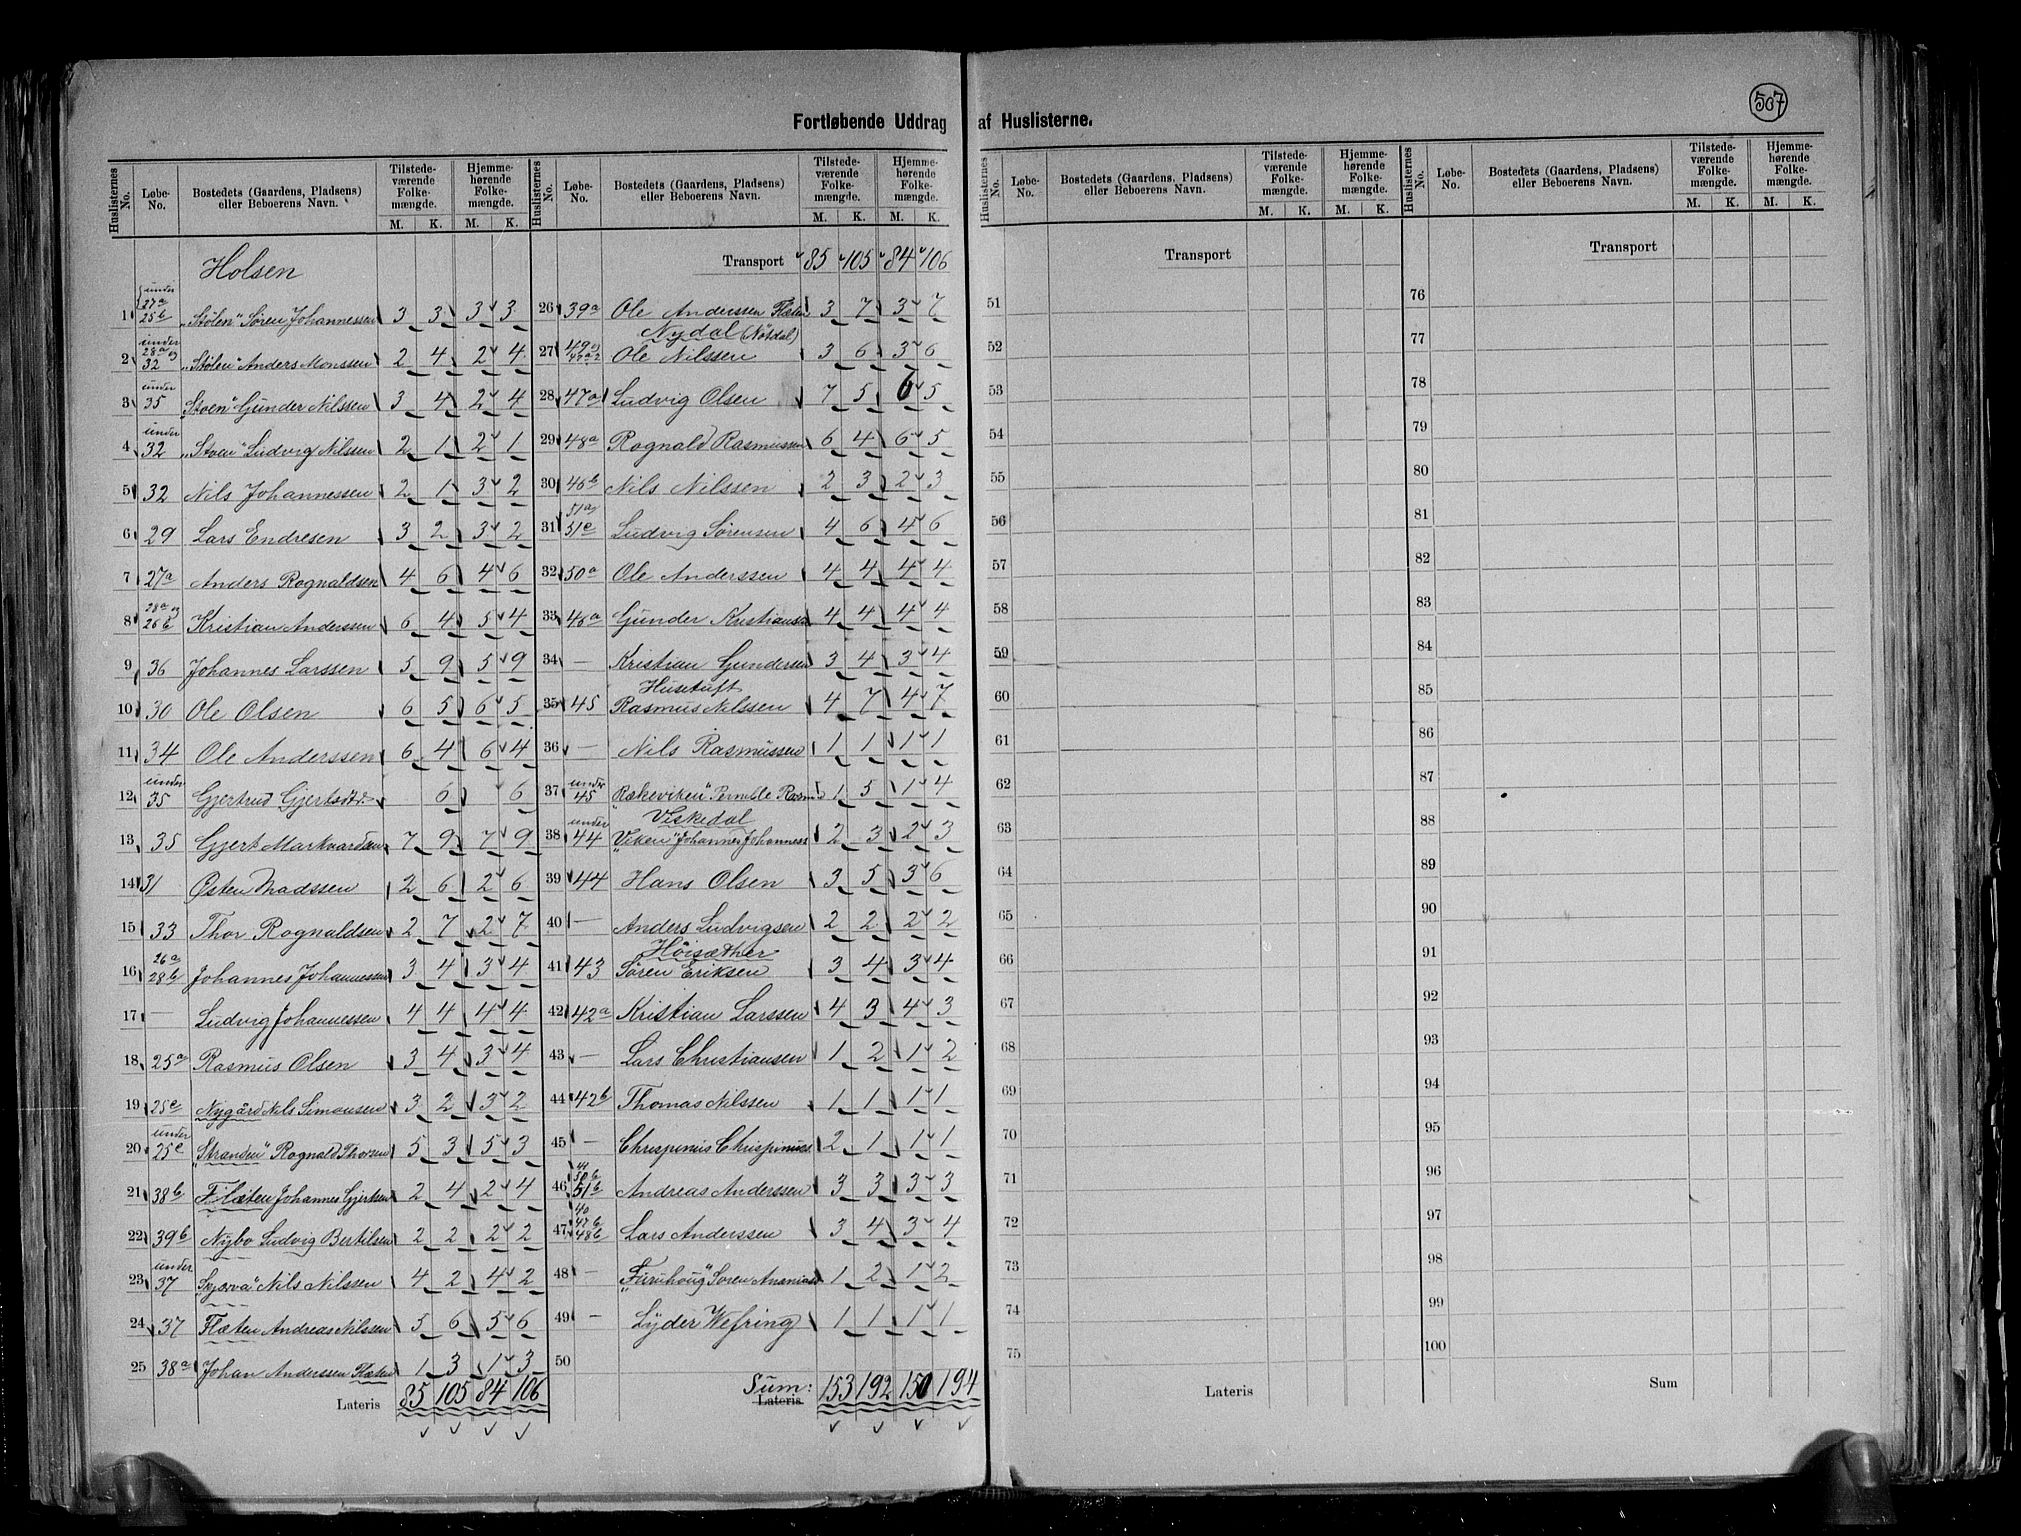 507
Fortløbende Uddrag af Huslisterne.
Huslisternes No. Løbe-No. Bostedets (Gaardens, Pladsens) eller Beboerens Navn. Tilstedeværende Folkemængde. M. K. Hjemmehørende Folkemængde. M. K.
Holsen
1 under 27a 25b "Stølen" Søren Johannessen 3 3 3 3
2 under 28a og 32 "Stølen" Anders Monssen 2 4 2 4
3 under 35 "Stoen" Gunder Nilssen 3 4 2 4
4 under 32 "Stoen" Ludvig Nilssen 2 1 2 1
5 32 Nils Johannessen 2 1 3 2
6 29 Lars Endresen 3 2 3 2
7 27a Anders Rognaldsen 4 6 4 6
8 28a og 26b Kristian Anderssen 6 4 5 4
9 36 Johannes Larssen 5 9 5 9
10 30 Ole Olsen 6 5 6 5
11 34 Ole Anderssen 6 4 6 4
12 under 35 Gjertrud Gjertsdtr. 6 6
13 35 Gjert Markvardsen 7 9 7 9
14 31 Østen Madssen 2 6 2 6
15 33 Thor Rognaldsen 2 7 2 7
16 26a 28b Johannes Johannessen 3 4 3 4
17 — Ludvig Johannessen 4 4 4 4
18 25a Rasmus Olsen 3 4 3 4
19 25c Nygård Nils Simonsen 3 2 3 2
20 under 25c "Stranden" Rognald Thorsen 5 3 5 3
21 38b Flæten Johannes Gjertsen 2 4 2 4
22 39b Nybo Ludvig Bertilsen 2 2 2 2
23 under 37 Nils Nilssen 4 2 4 2
24 37 Flæten Andreas Nilssen 5 6 5 6
25 38a Johan Anderssen Flæten 1 3 1 3
Lateris 85 105 84 106
Huslisternes No. Løbe-No. Bostedets (Gaardens, Pladsens) eller Beboerens Navn. Tilstedeværende Folkemængde. M. K. Hjemmehørende Folkemængde. M. K.
Transport 85 105 84 106
26 39a Ole Anderssen Flæten 3 7 3 7
Nydal (Nøsdal)
27 49a 47a2 Ole Nilssen 3 6 3 6
28 47a Ludvig Olsen 7 5 6 5
29 48a Rognald Rasmussen 6 4 6 5
30 46b Nils Nilssen 2 3 2 3
31 51a 51c Ludvig Sørensen 4 6 4 6
32 50a Ole Anderssen 4 4 4 4
33 46a Gunder Kristiansen 4 4 4 4
34 — Kristian Gundersen 3 4 3 4
Husetuft
35 45 Rasmus Nilssen 4 7 4 7
36 — Nils Rasmussen 1 1 1 1
37 under 45 "Rækeviken" Pernille Rasmd 1 5 1 4
Viskedal
38 under 44 "Viken" Johannes Johanness. 2 3 2 3
39 44 Hans Olsen 3 5 3 6
40 — Anders Ludvigsen 2 2 2 2
Høisæther
41 43 Søren Eriksen 3 4 3 4
42 42a Kristian Larssen 4 3 4 3
43 — Lars Christiansen 1 2 1 2
44 42b Thomas Nilssen 1 1 1 1
45 — Chrispinus Chrispinuss. 2 1 1 1
46 41 50b 51b Andreas Anderssen 3 3 3 3
47 40 47b 48b Lars Anderssen 3 4 3 4
48 — "Furuhoug" Søren Ananiass. 1 2 1 2
49 — Lyder Wefring 1 1 1 1
50
Sum: Lateris 153 192 150 194
Huslisternes No. Løbe-No. Bostedets (Gaardens, Pladsens) eller Beboerens Navn. Tilstedeværende Folkemængde. M. K. Hjemmehørende Folkemængde. M. K.
Transport
51
52
53
54
55
56
57
58
59
60
61
62
63
64
65
66
67
68
69
70
71
72
73
74
75
Lateris
Huslisternes No. Løbe-No. Bostedets (Gaardens, Pladsens) eller Beboerens Navn. Tilstedeværende Folkemængde. M. K. Hjemmehørende Folkemængde. M. K.
Transport
76
77
78
79
80
81
82
83
84
85
86
87
88
89
90
91
92
93
94
95
96
97
98
99
100
Sum